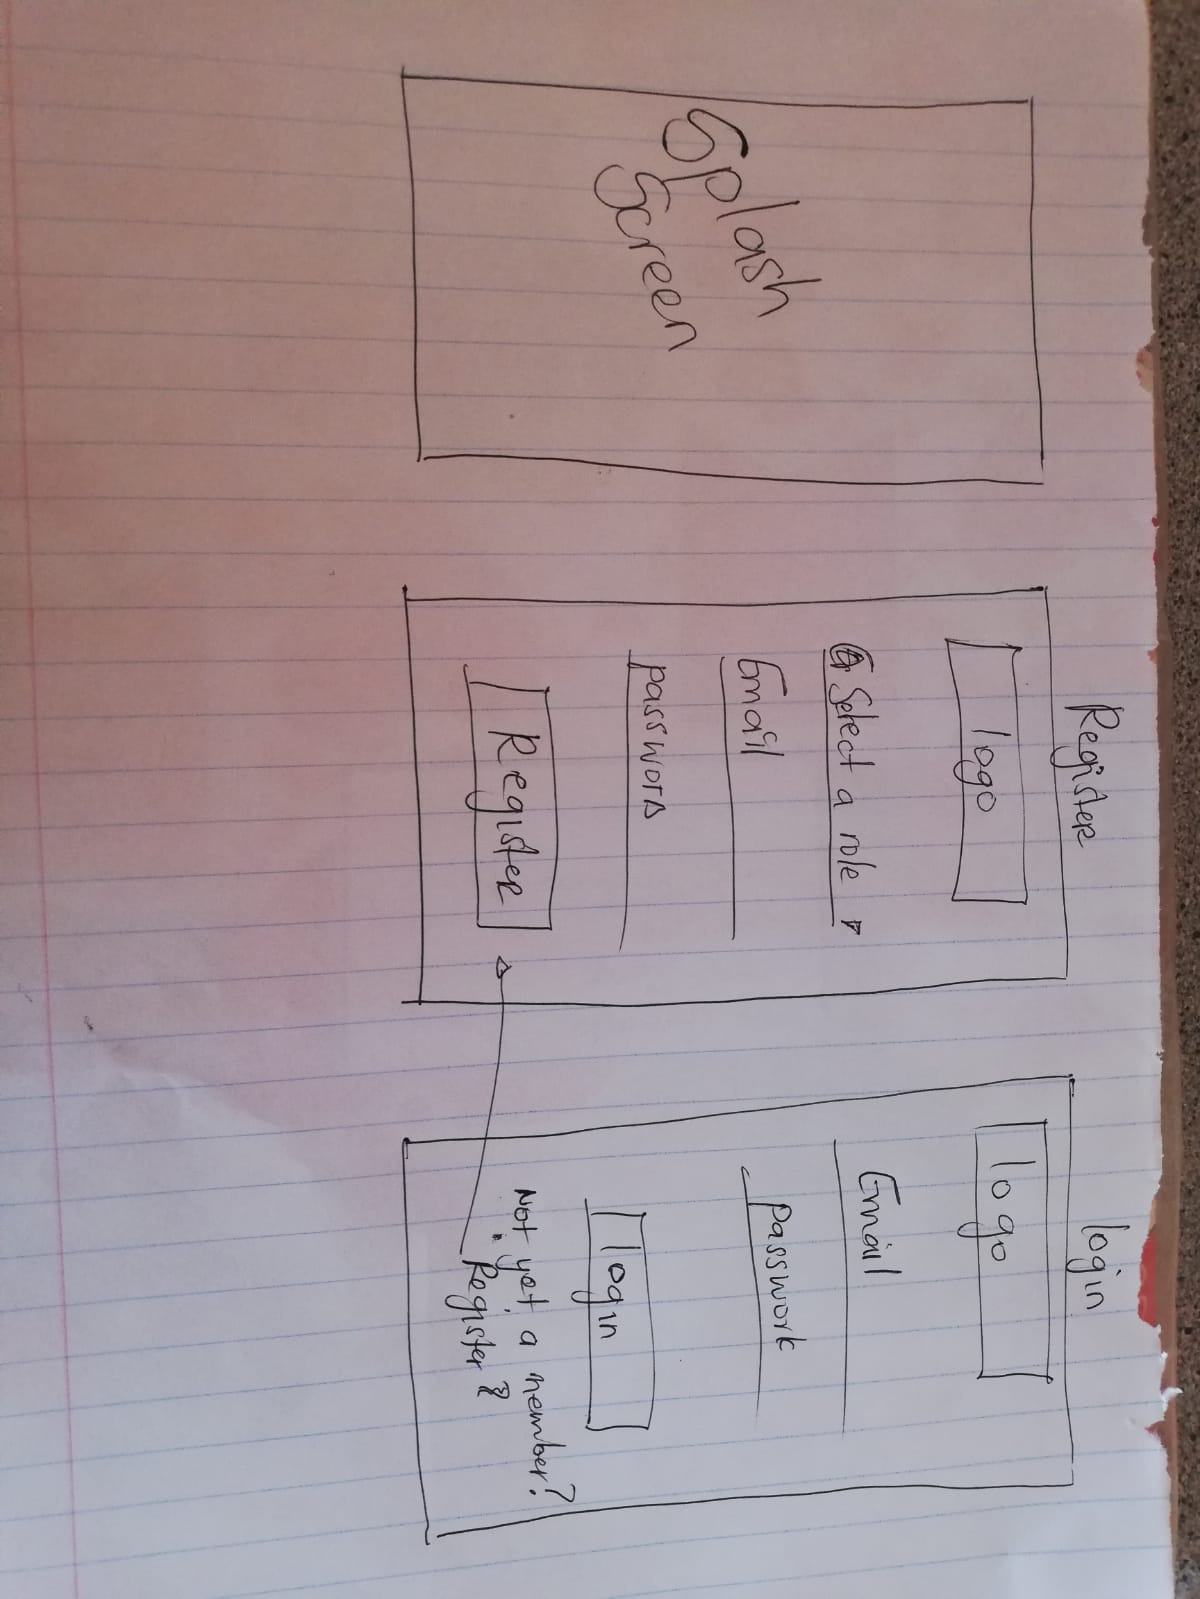 Splash
Screen
Register
logo
Select a role
Email
password
Register
login
logo
Email
passwork
login
Not yet a member?
Register?